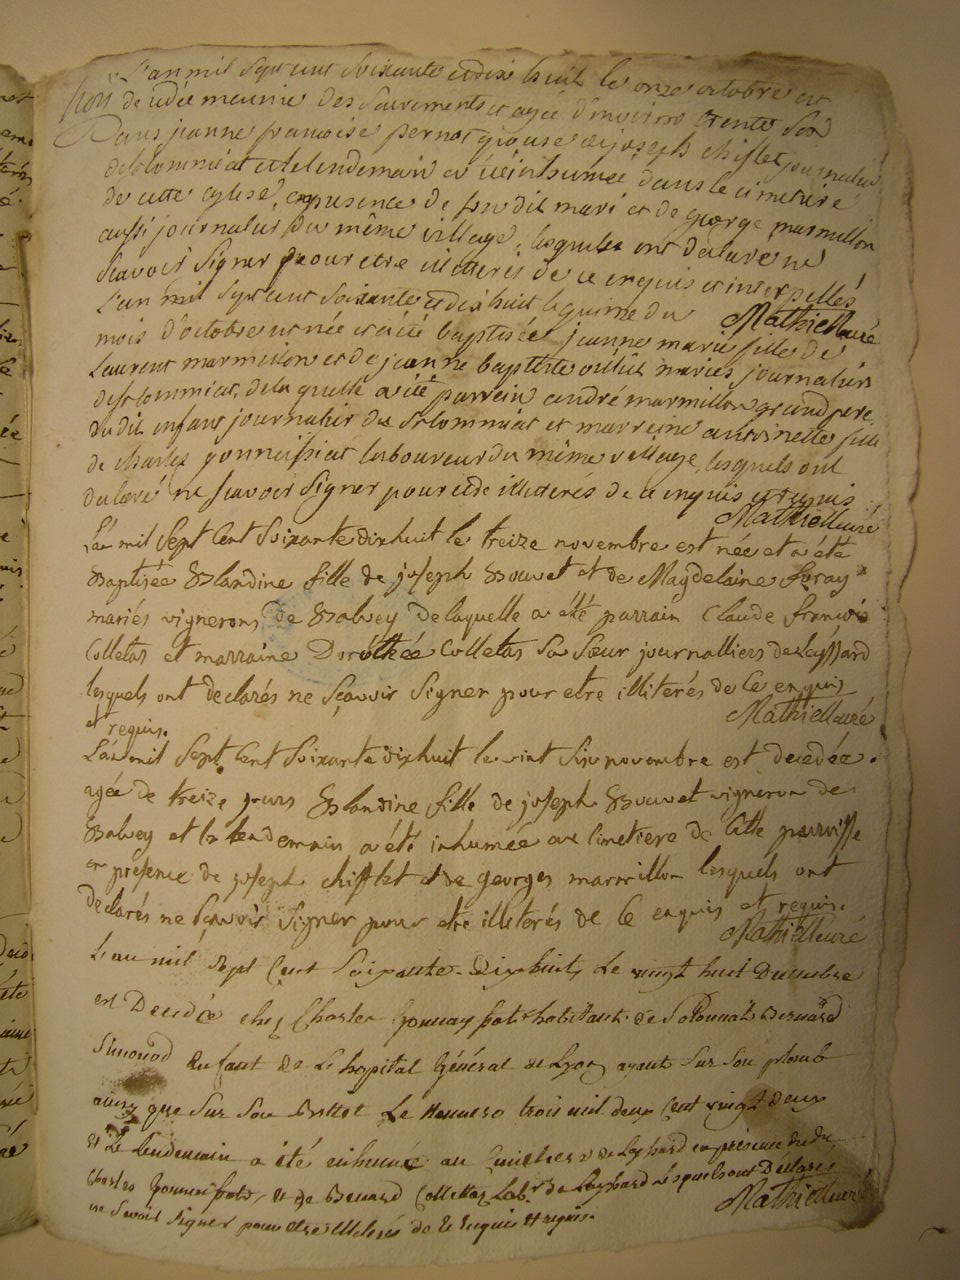 L'an mil sept cent soixante et dix huit le onze octobre est
decedée munie des sacrements et agée d'environ trente
ans jeanne francoise pernot epouse de joseph chiflet journalier
de st lommiat et le lendemain a été inhumée dans le cimetiere
de cette eglise, en presence de son dit mari et de george marmillon
aussi journalier du même village, lesquels ont declaré ne
scavoir signer pour etre illiterés de ce enquis et interpellés
Mathieu curé
L'an mil sept cent soixante et dix huit le quinze du
mois d'octobre est née et a été baptisée jeanne marie fille de
Laurent marmillon et de jeanne baptiste mariés journaliers
de st lommiat, de laquelle a été parrein andré marmillon grand pere
du dit enfant journalier du st lommiat et marreine antoinette fille
de charles gonneissiat laboureur du même village, lesquels ont
declaré ne scavoir signer pour etre illiterés de ce enquis et requis
Mathieu curé
L'an mil sept cent soixante dixhuit le treize novembre est née et a été
Baptisée Blandine fille de joseph Bouvet et de Magdelaine
mariés vignerons de Balvey de laquelle a été parrain Claude françois
Colletas et marraine Dorothée Colletas sa sœur journalliers de Leyssard
lesquels ont declarés ne sçavoir signer pour etre illiterés de ce enquis
et requis. Mathieu curé
L'an mil sept cent soixante dixhuit le vint six novembre est decedée
agée de treize jours Blandine fille de joseph Bouvet vigneron de
Balvey et le lendemain a été inhumée au cimetiere de cette parroisse
en presence de joseph chifflet et de georges marmillon lesquels ont
declarés ne sçavoir signer pour etre illiterés de ce enquis et requis.
Mathieu curé
L'an mil sept cent soixante-dix huit, le vingt huit decembre
est decedée chez Charles habitant de Bernard
Simonod enfant de l'hopital Général de Lyon ayant sur son plomb
ainsy que sur son Brillet le numero trois mil deux cent vingt deux
et le lendemain a été inhumé au cimetiere de Leyssard en présence du du
Charles et de Benard Colletas Labr de Leyssard lesquels ont déclarés
ne savoir signer pour etre illiterés de ce enquis et requis.
Mathieu curé